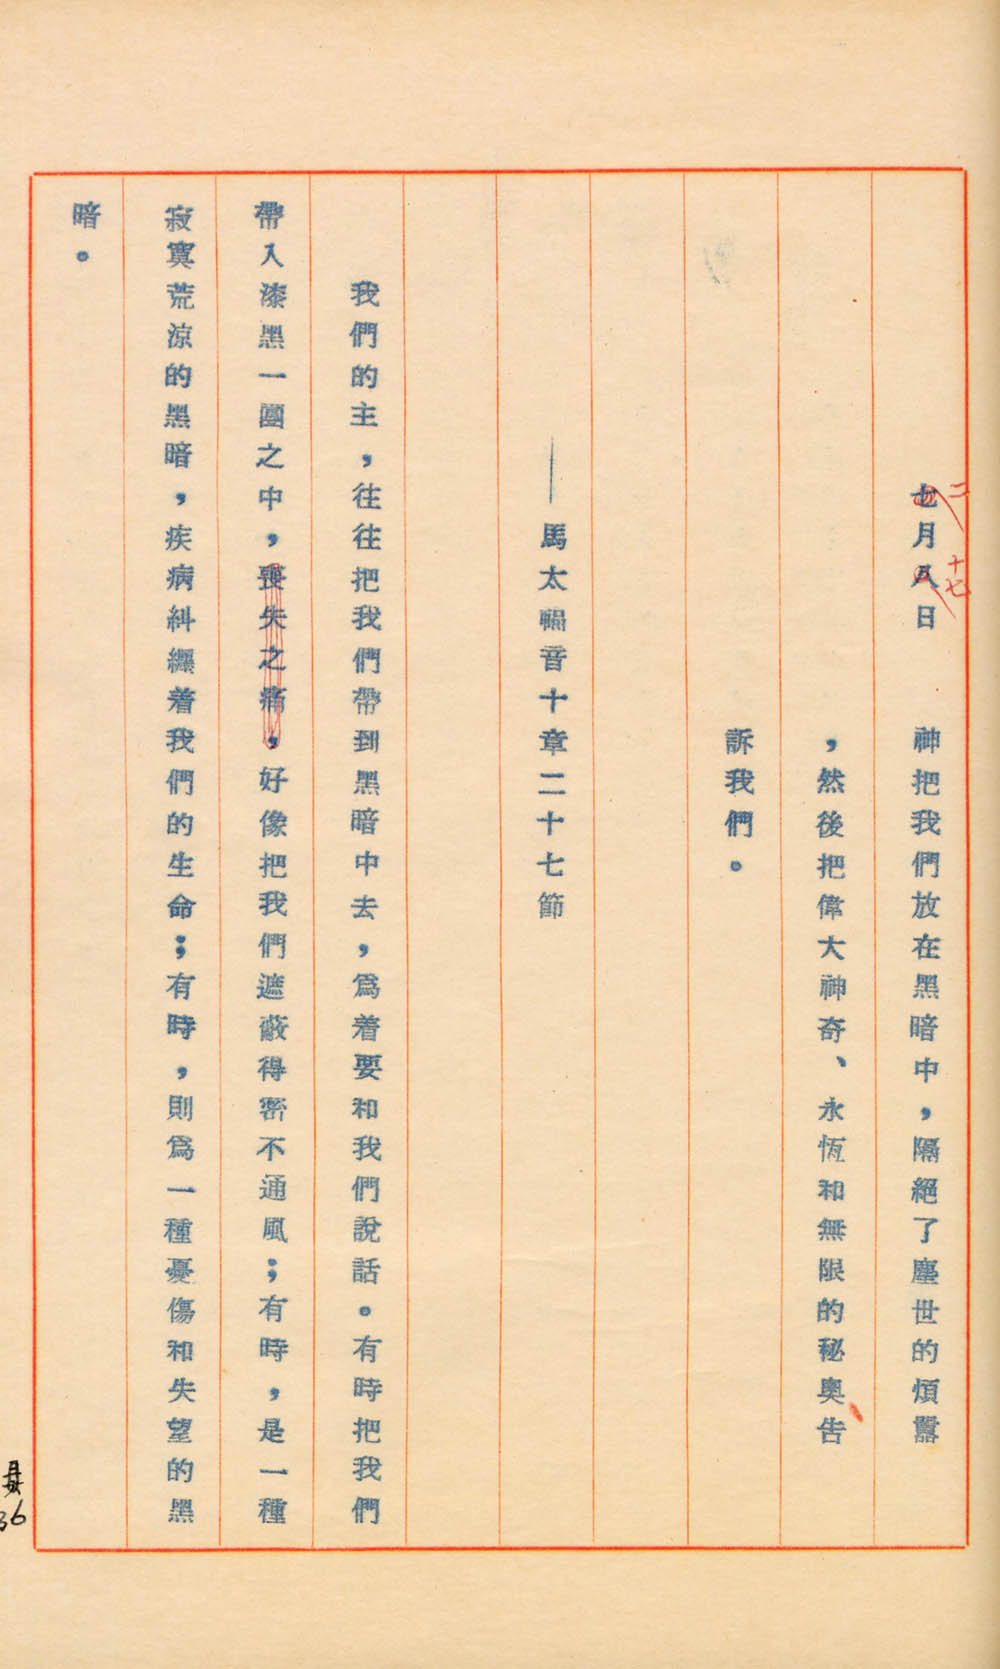 七月八日
二
十七
神把我們放在黑暗中，隔絕了塵世的煩囂
，然後把偉大神奇、永恆和無限的秘奧告
訴我們。
——馬太福音十章二十七節
我們的主，往往把我們帶到黑暗中去，爲着要和我們說話。有時把我們
帶入漆黑一團之中，喪失之痛，好像把我們遮蔽得密不通風；有時，是一種
寂寞荒涼的黑暗，疾病糾纏着我們的生命；有時，則爲一種憂傷和失望的黑
暗。
36